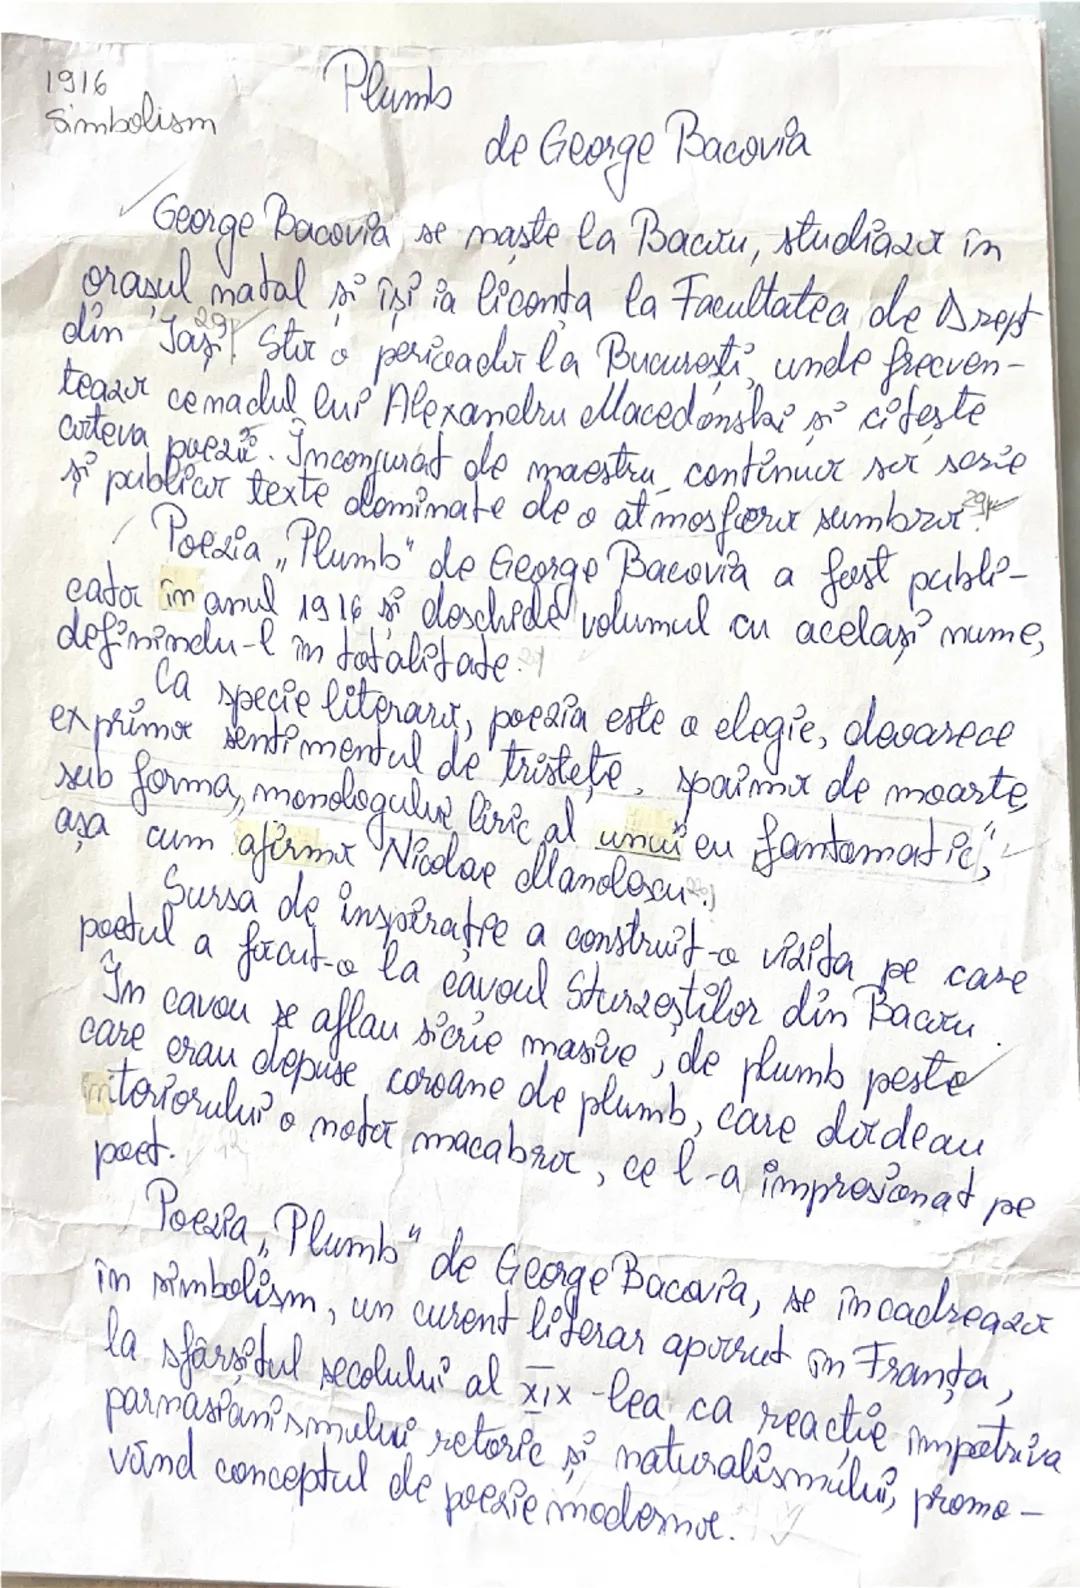 1916
Simbolism
Plumb
de George Bacovia
George Bacovia se naște la Bacău, studiază în
orașul natal și își ia licența la Facultatea de Drept
din Iași. Stă o perioadă la București, unde frecven-
tează cenaclul lui Alexandru Macedonski și citește
câteva poezii. Înconjurat de maestru, continuă să scrie
și publică texte dominate de o atmosferă sumbră.
Poezia „Plumb" de George Bacovia a fost publi-
cată în anul 1916 și deschide volumul cu același nume,
definindu-l în totalitate.
Ca specie literară, poezia este o elegie, deoarece
exprimă sentimentul de tristețe, spaimă de moarte,
sub forma „monologului liric al unui eu fantomatic",
așa cum afirmă Nicolae Manolescu.
Sursa de inspirație a construit-o vizita pe care
poetul a făcut-o la cavoul Sturzeștilor din Bacău.
În cavou se aflau sicrie masive, de plumb peste
care erau depuse coroane de plumb, care dădeau
interiorului o notă macabră, ce l-a impresionat pe
poet.
Poezia „Plumb" de George Bacovia, se încadrează
în simbolism, un curent literar apărut în Franța,
la sfârșitul secolului al XIX-lea ca reacție împotriva
parnasianismului retoric și naturalismului, promo-
vând conceptul de poezie modernă.